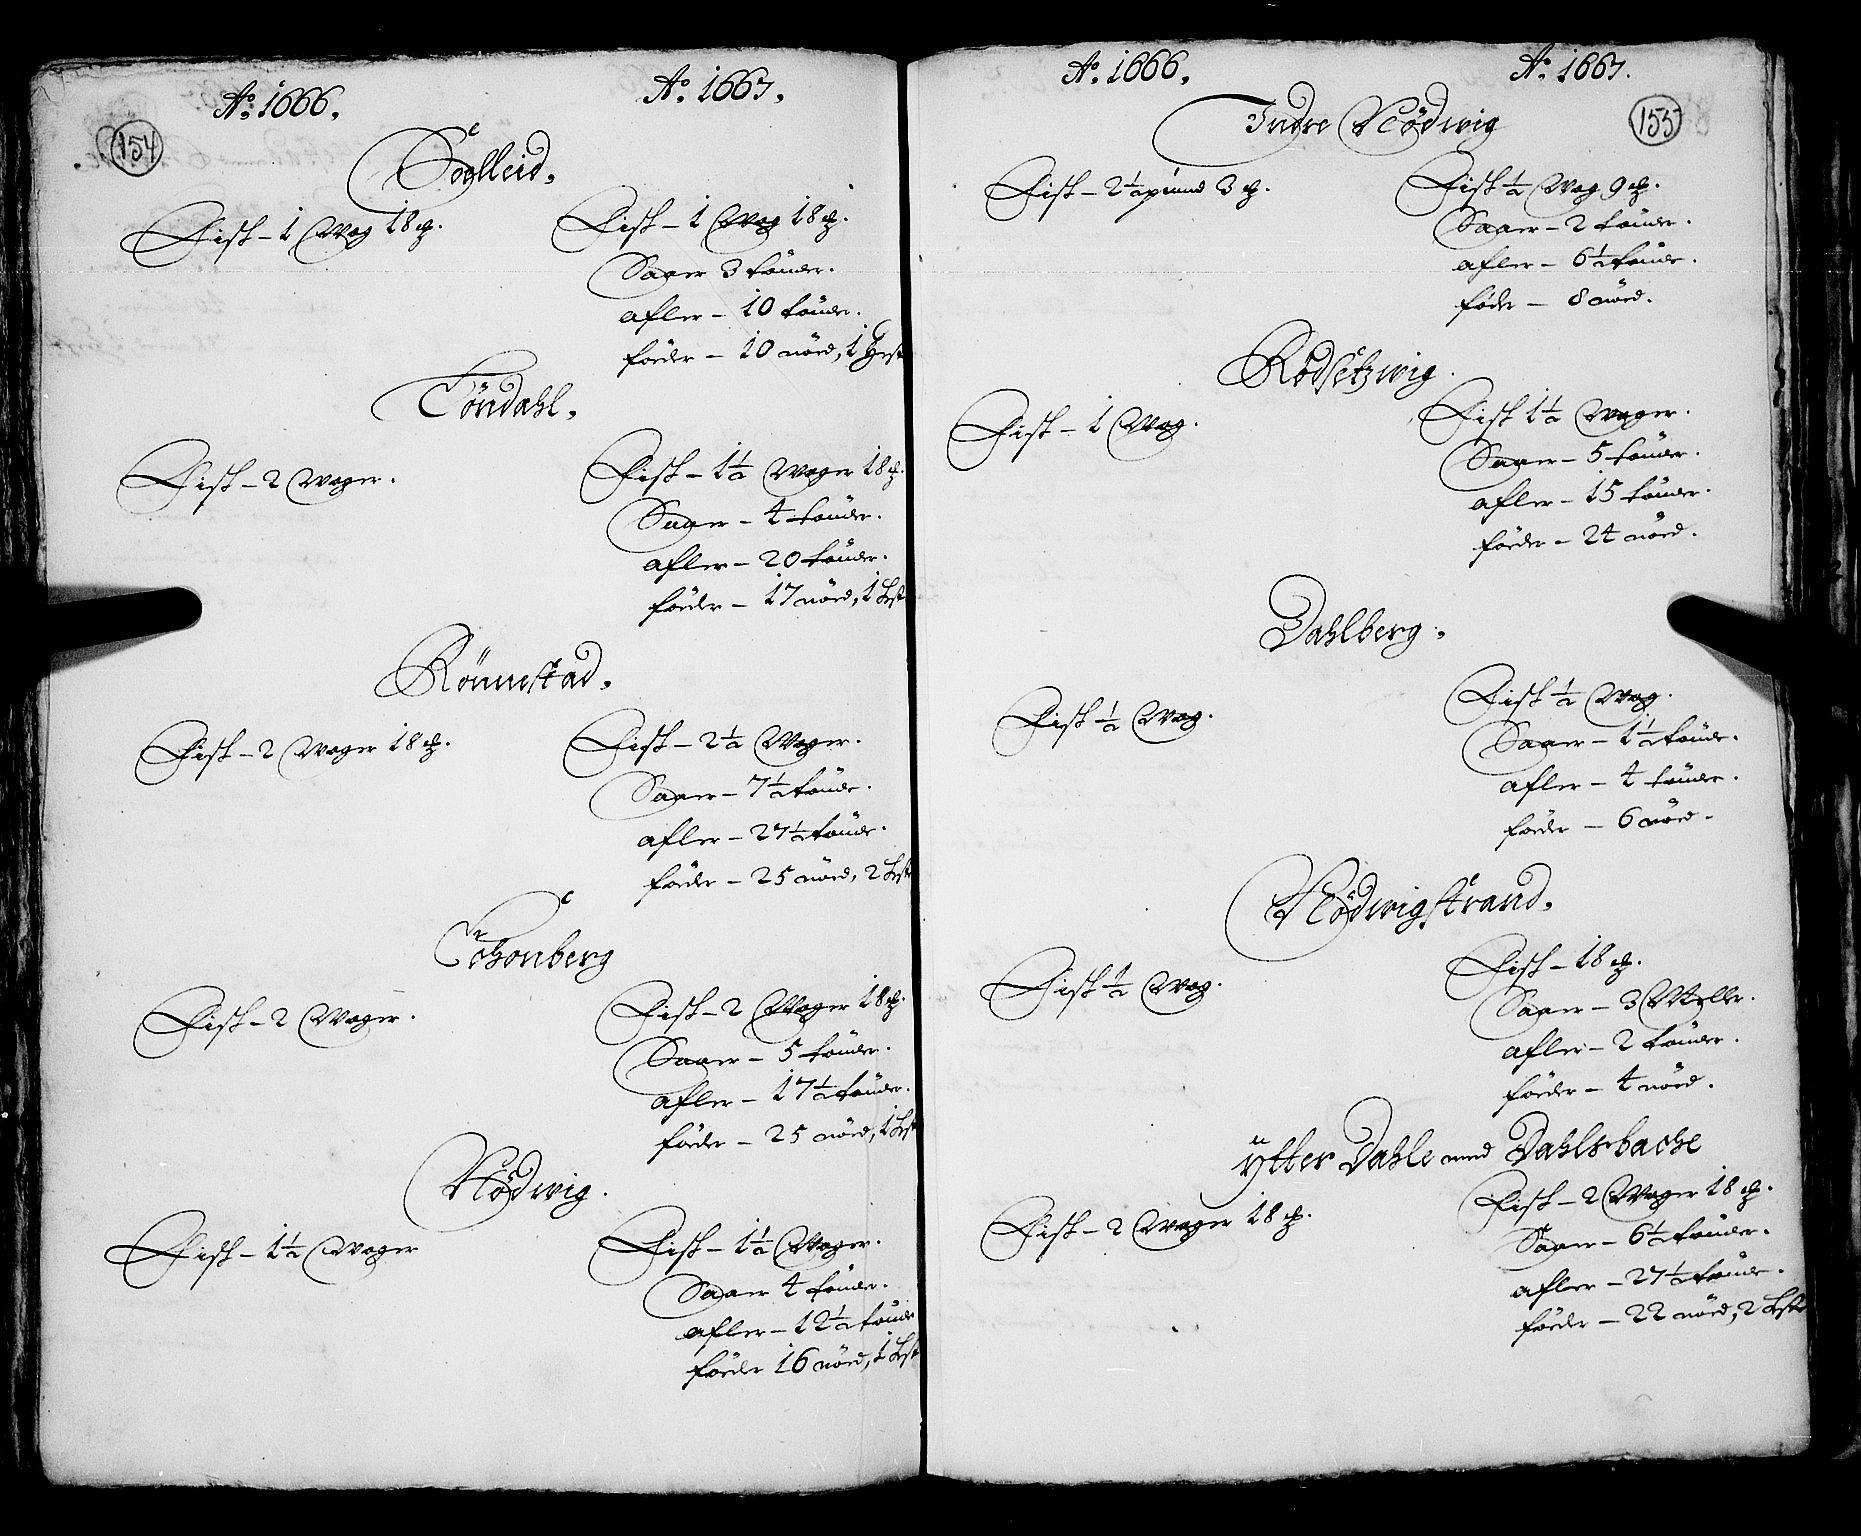 154
Ao. 1666.
Ao. 1667.
Sögleid.
Fisk – 1 Wog 18 ℔.
Fisk – 1 Wog 18 ℔.
Saaer 3 tönder.
afler – 10 tönder.
föeder – 10 nöed, 1 Hest
Töndahl.
Fisk – 2 Woger.
Fisk – 1½ Woger 18 ℔.
Saaer – 4 tönder.
afler – 20 tönder.
föeder – 17 nöed, 1 hest
Rönnestad.
Fisk – 2 Woger 18 ℔.
Fisk – 2½ Woger.
Saaer – 7½ tönde.
afler – 27½ tönde.
föeder – 25 nöed, 2 hest
Fisk – 2 Woger.
Fisk – 2 Woger 18 ℔.
Saaer – 5 tönder.
afler – 17½ tönder.
föeder – 25 nöed, 1 hest
Nödwig.
Fisk – 1½ Woger
Fisk – 1½ Woger.
Saaer 4 tönder.
afler – 12½ tönde
föeder 16 nöed, 1 hest
155
Ao. 1666.
Ao. 1667.
Indre Nödwig
Fisk – 2½ pünd 3 ℔.
Fisk ½ Wog 9 ℔.
Saaer – 2 tönder.
afler – 6½ tönde.
föder – 8 nöed.
Rödsetzwig.
Fisk – 1 Wog.
Fisk 1½ Woger.
Saaer – 5 tönder.
afler – 15 tönder.
föeder – 24 nöed.
Dahlberg.
Fisk ½ Wog.
Fisk ½ Wog.
Saaer – 1½ tönde.
afler – 4 tönder.
föeder – 6 nöed.
Nödwigstrand.
Fisk ½ Wog.
Fisk – 18 ℔.
Saaer – 3 Meller.
afler – 2 tönder.
föeder – 4 nöed.
Ytter Dahle med Dahlsbache
Fisk – 2 Woger 18 ℔.
Fisk – 2 Woger 18 ℔.
Saaer – 6½ tönder.
afler – 27½ tönde.
föeder – 22 nöed, 2 heste